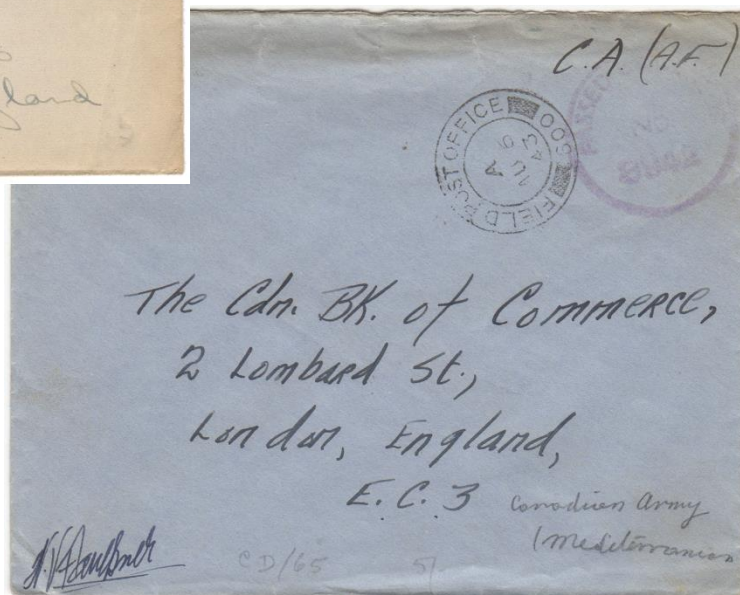 gland
C.A. (A.F.)
FIELD POST OFFICE 600
A
43
PASSED
No
The Cdn. BK. of Commerce,
2 Lombard St.,
London, England,
E.C. 3
Canadian Army
(Mediterranean
CD/65